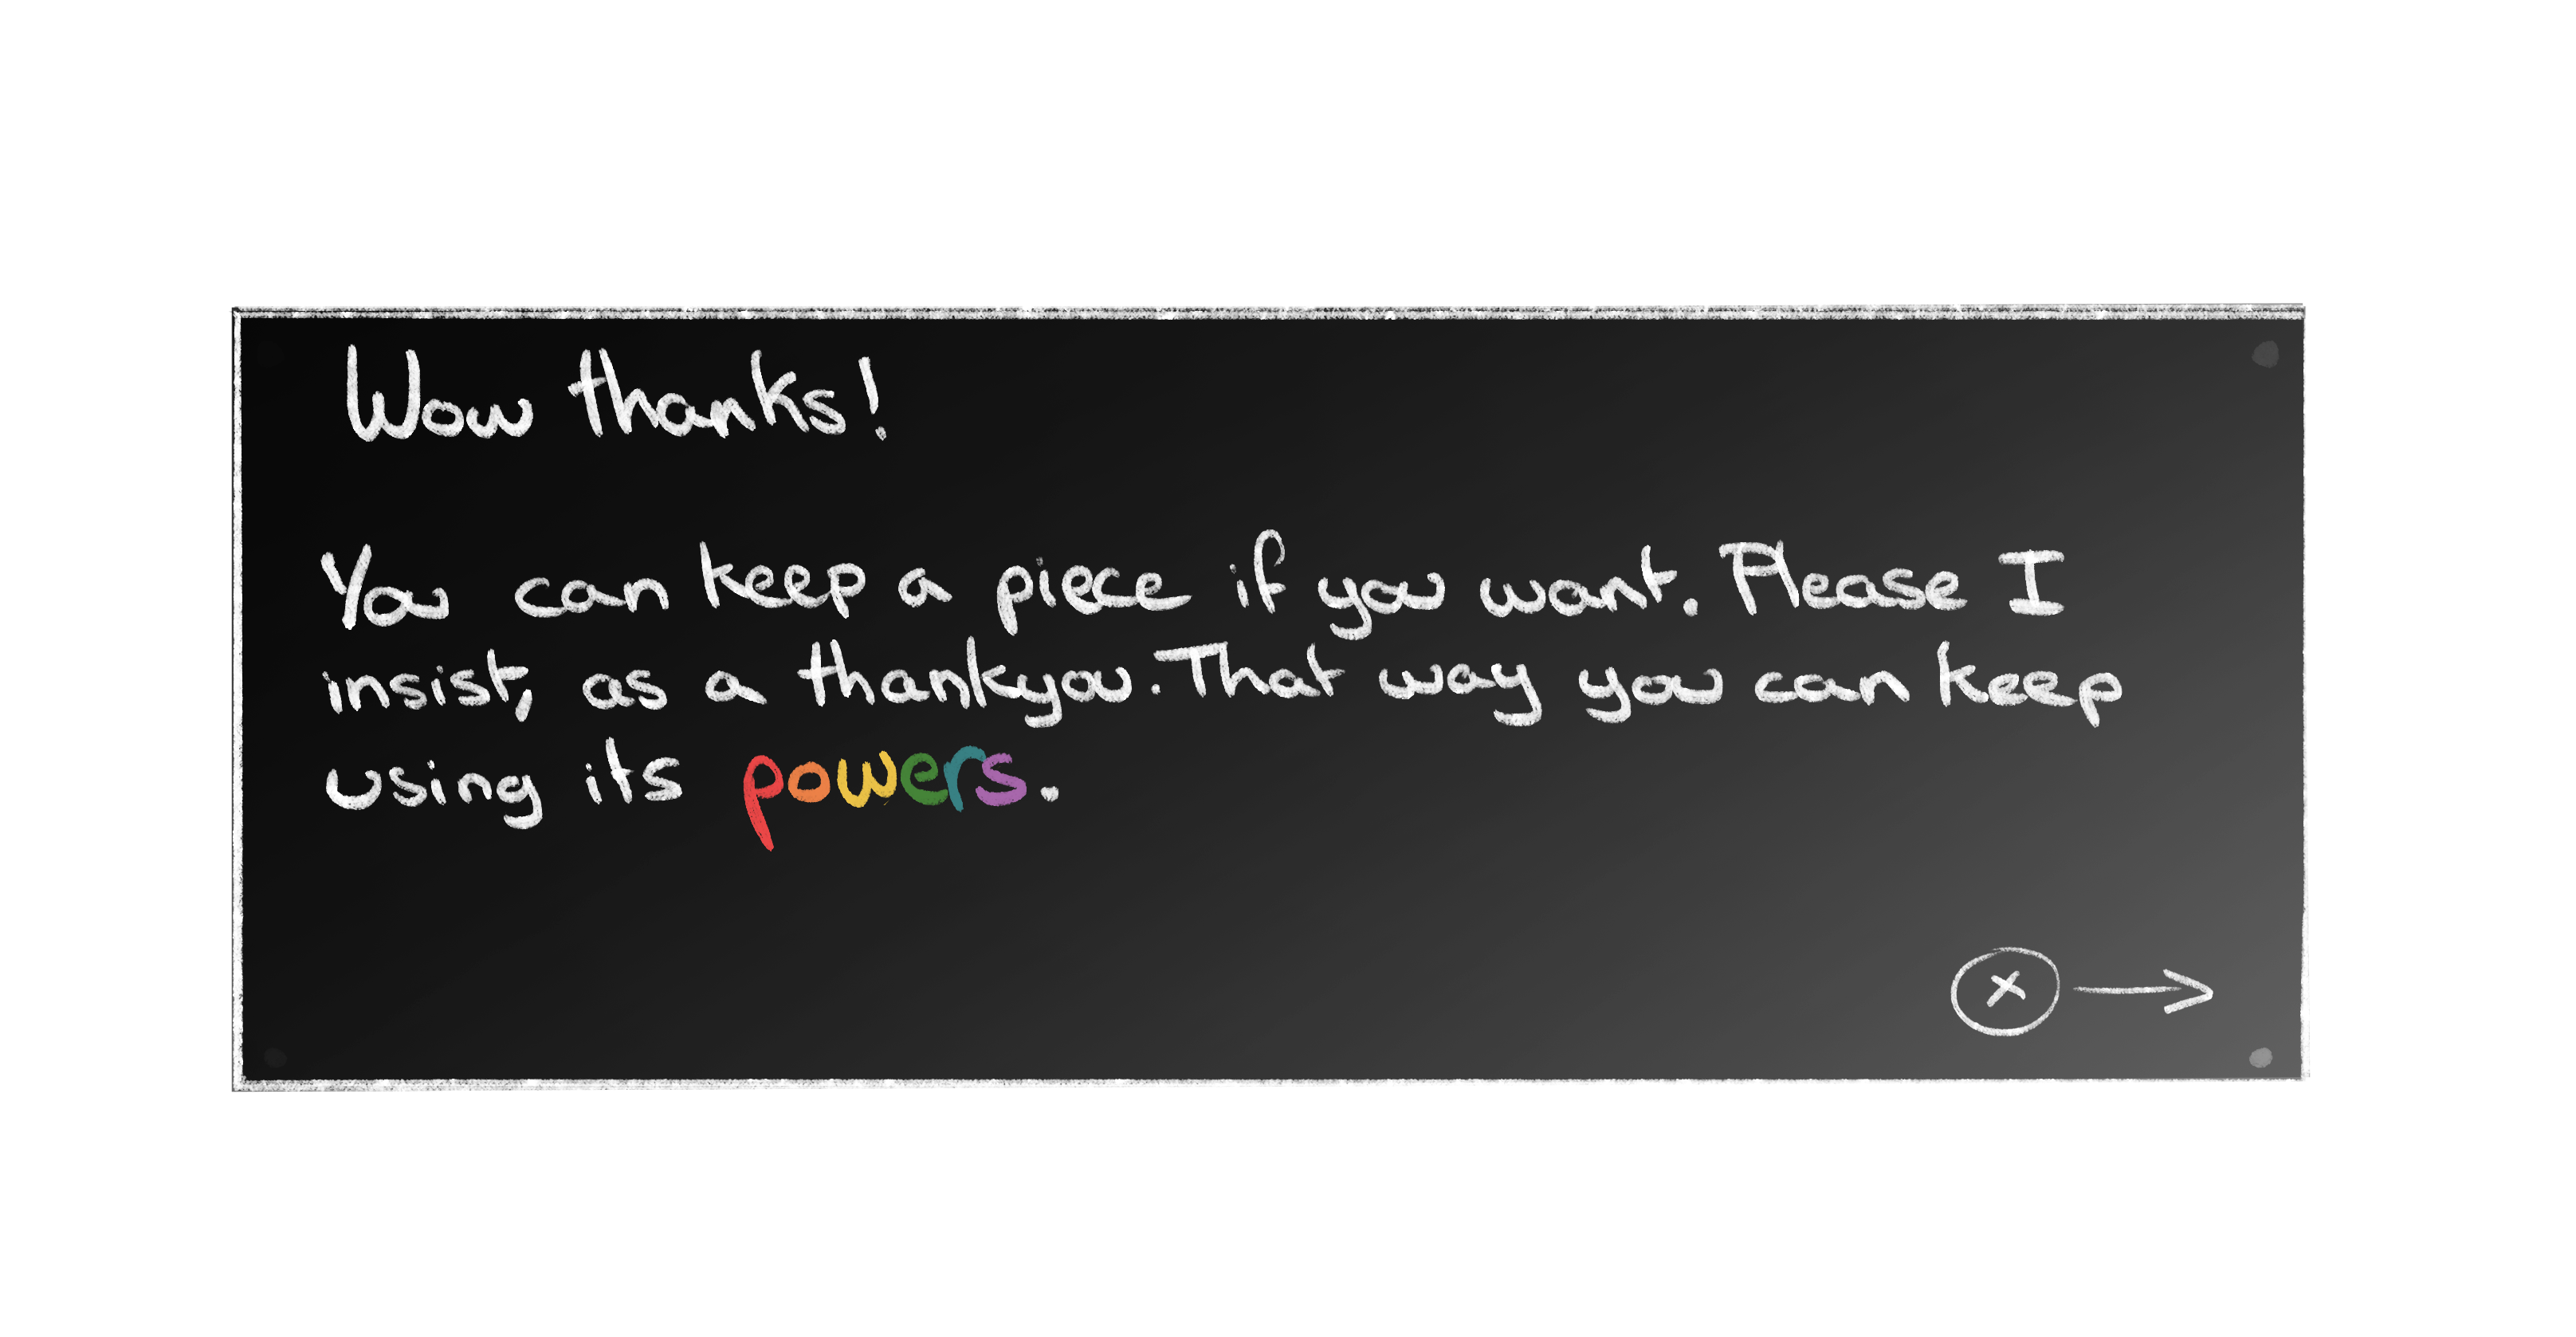 Wow thanks!
You can keep a piece if you want. Please I
insist, as a thankyou. That way you can keep
using its powers.
x